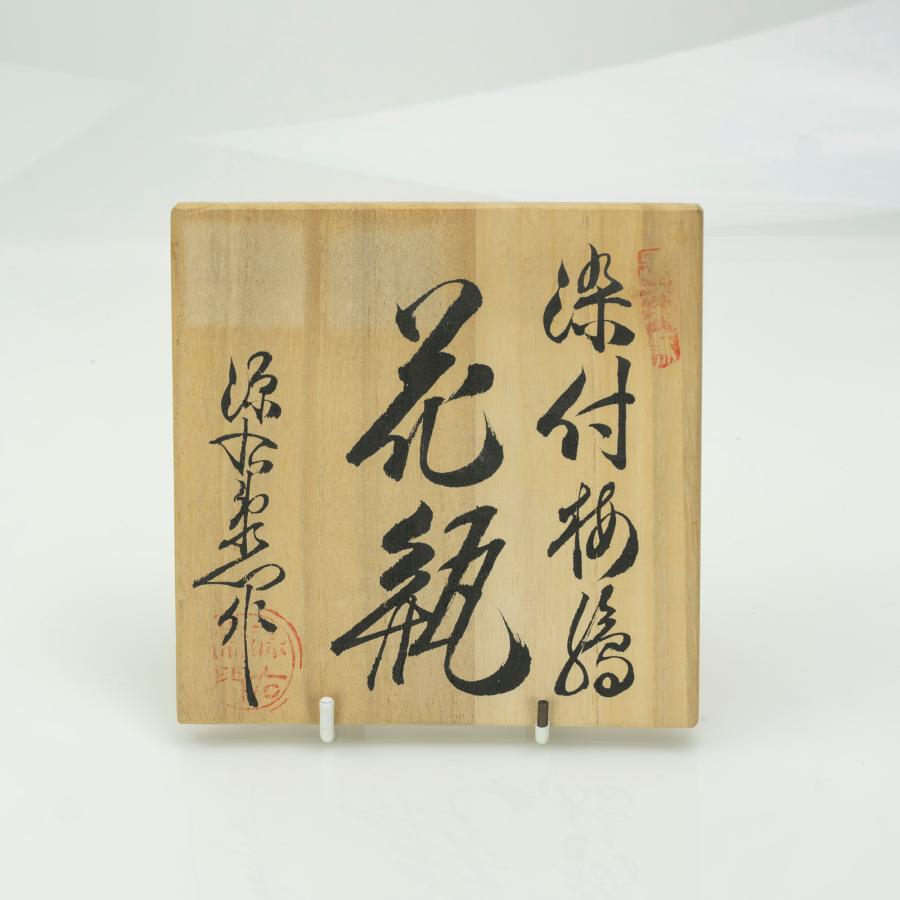 染付梅
花瓶
源右衛門作